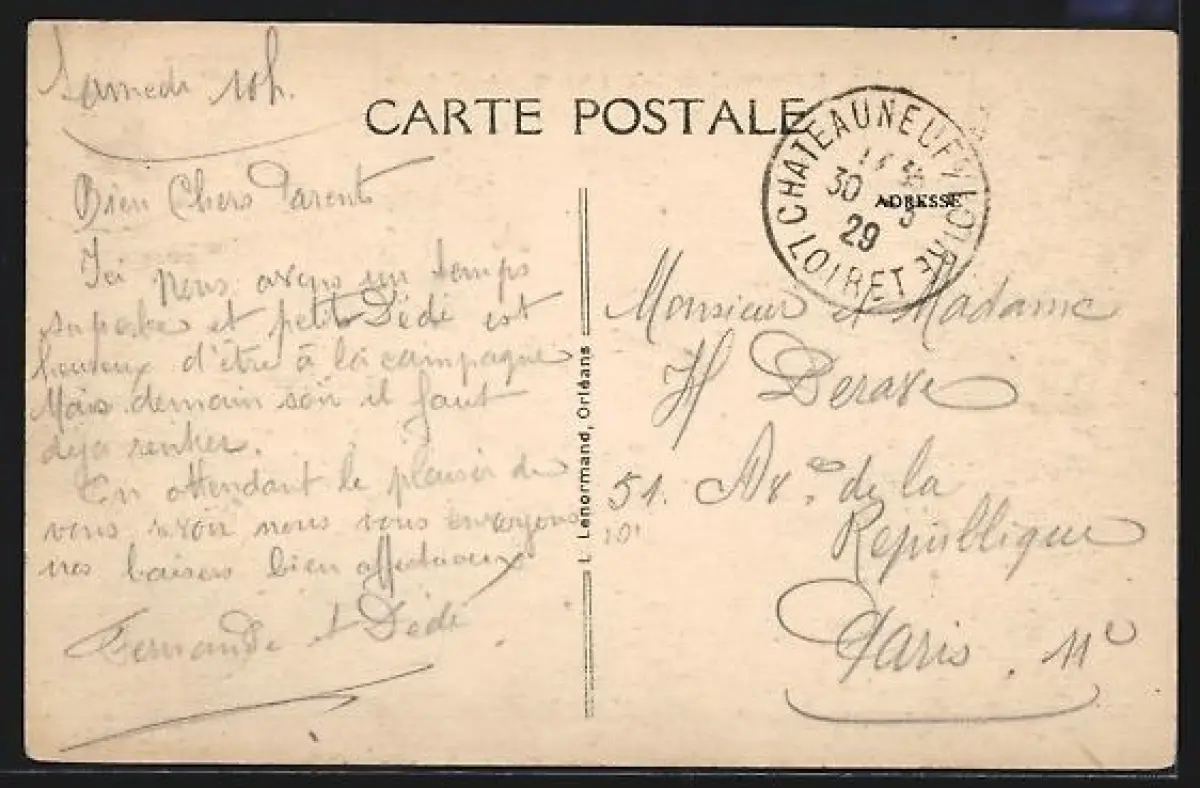 Samedi 10h.
CARTE POSTALE
CHATEAUNEUF S LOIRE
LOIRET
30 3
29
ADRESSE
Bien Chers Parents
Ici nous avons un temps
superbe et petit Dédé est
heureux d'être à la campagne
Mais demain soir il faut
déja rentrer.
En attendant le plaisir de
vous avoir nous vous envoyons
nos baisers bien affectueux
Fernande et Dédé
L. Lenormand, Orléans
Monsieur et Madame
H
51. Av. de la
Republique
Paris. 11e